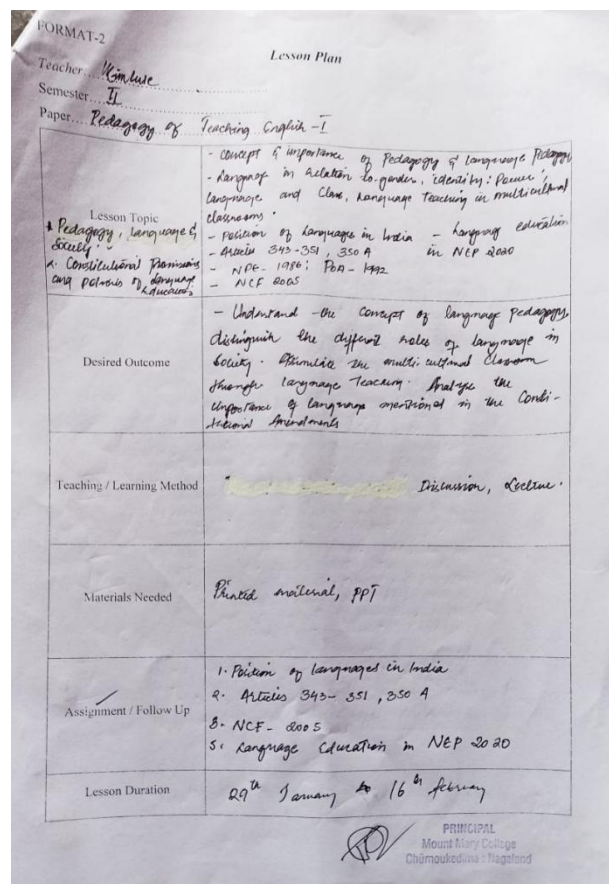 FORMAT-2
Lesson Plan
Teacher
Semester II
Paper Pedagogy of Teaching English - I
Lesson Topic
1. Pedagogy, Language &
Society.
2. Constitutional Provisions
and policies of Language
Education
- Concept & importance of Pedagogy & language Pedagogy
- Language in relation to gender, identity; Power;
language and Class, Language Teaching in multicultural
classrooms.
- Position of Languages in India - Language education
- Articles 343-351, 350 A in NEP 2020
- NPE - 1986; PoA - 1992
- NCF 2005
Desired Outcome
- Understand the concept of language Pedagogy,
distinguish the different roles of language in
Society. the multi cultural Classroom
through language Teaching. Analyse the
importance of language mentioned in the Consti-
tutional Amendments
Teaching / Learning Method
Discussion, Lecture.
Materials Needed
Printed material, PPT
Assignment / Follow Up
1. Position of languages in India
2. Articles 343-351, 350 A
3. NCF - 2005
5. Language Education in NEP 2020
Lesson Duration
29th January to 16th february
PRINCIPAL
Mount Mary College
Chümoukedima : Nagaland